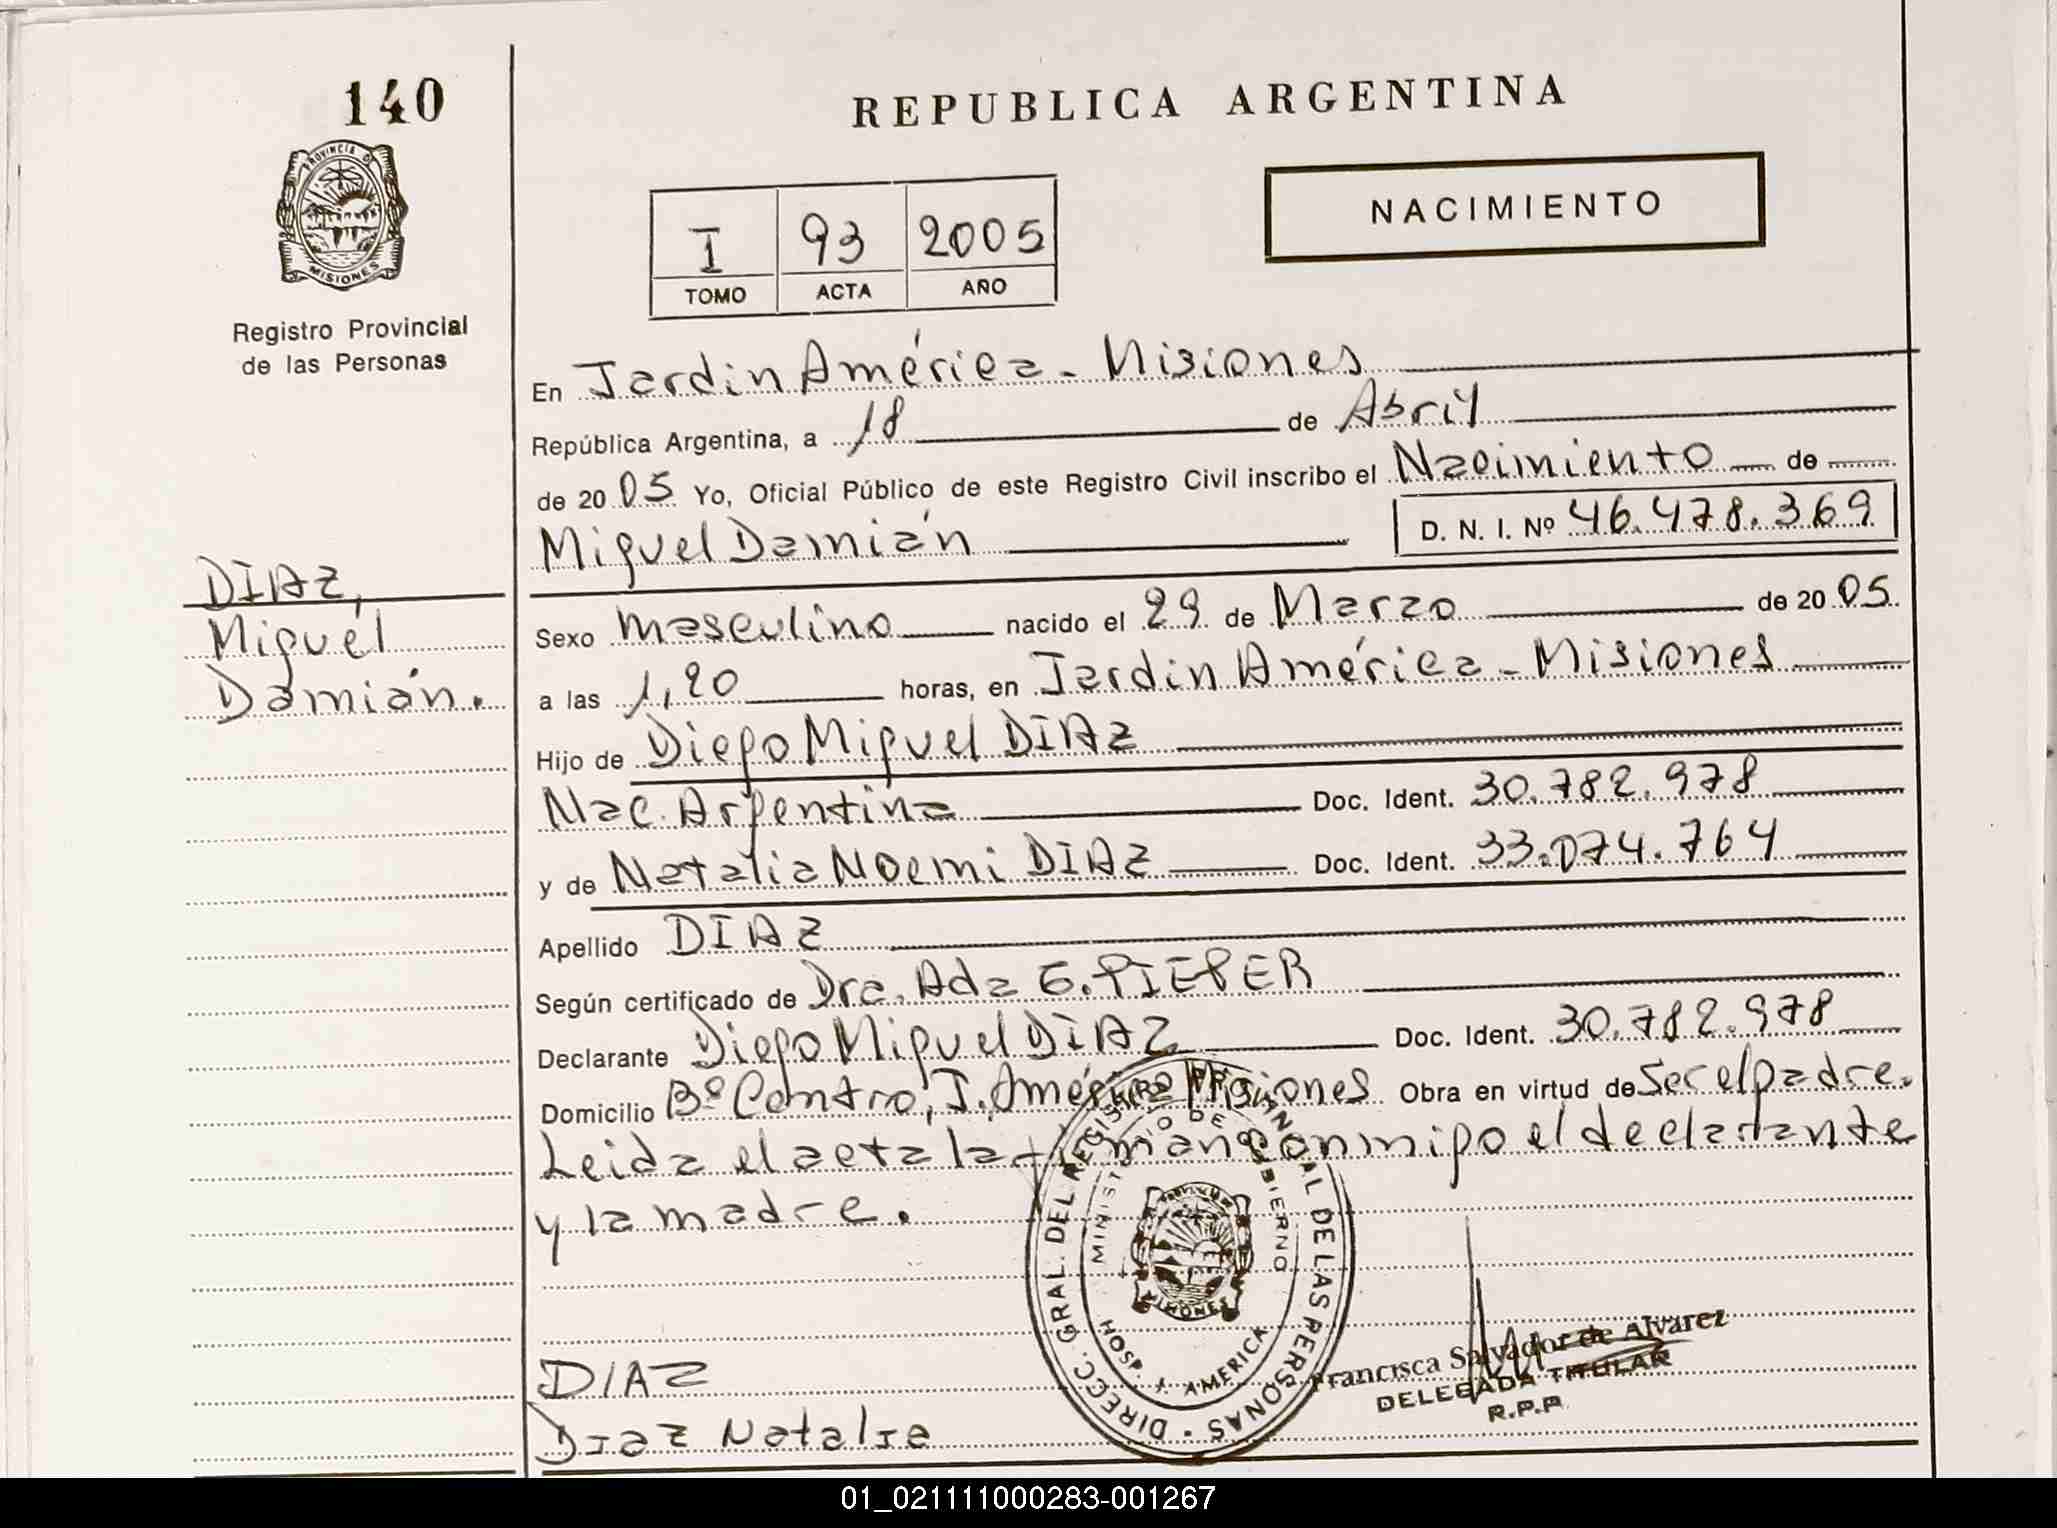 140
PROVINCIA DE
MISIONES
Registro Provincial
de las Personas
DIAZ,
Miguel
Damián.
REPUBLICA ARGENTINA
NACIMIENTO
I 93 2005
TOMO ACTA AÑO
En Jardin América - Misiones
República Argentina, a 18 de Abril
de 2005 Yo, Oficial Público de este Registro Civil inscribo el Nacimiento de
Miguel Damián D. N. I. Nº 46.478.369
Sexo masculino nacido el 29 de Marzo de 2005
a las 1,20 horas, en Jardin América - Misiones
Hijo de Diego Miguel DIAZ
Nac. Argentina Doc. Ident. 30.782.978
y de Natalia Noemi DIAZ Doc. Ident. 33.074.764
Apellido DIAZ
Según certificado de Dra. Ada E. PIEPER
Declarante Diego Miguel DIAZ Doc. Ident. 30.782.978
Domicilio Bº Centro, J. América Misiones Obra en virtud de Ser el padre.
Leida el acta la firman conmigo el declarante
y la madre.
DIRECC. GRAL. DEL REGISTRO PROVINCIAL DE LAS PERSONAS
MINISTERIO DE GOBIERNO
MISIONES
HOSP. J. AMERICA
Francisca Salvador de Alvarez
DELEGADA TITULAR
R.P.P.
DIAZ
Diaz Natalia
01_021111000283-001267